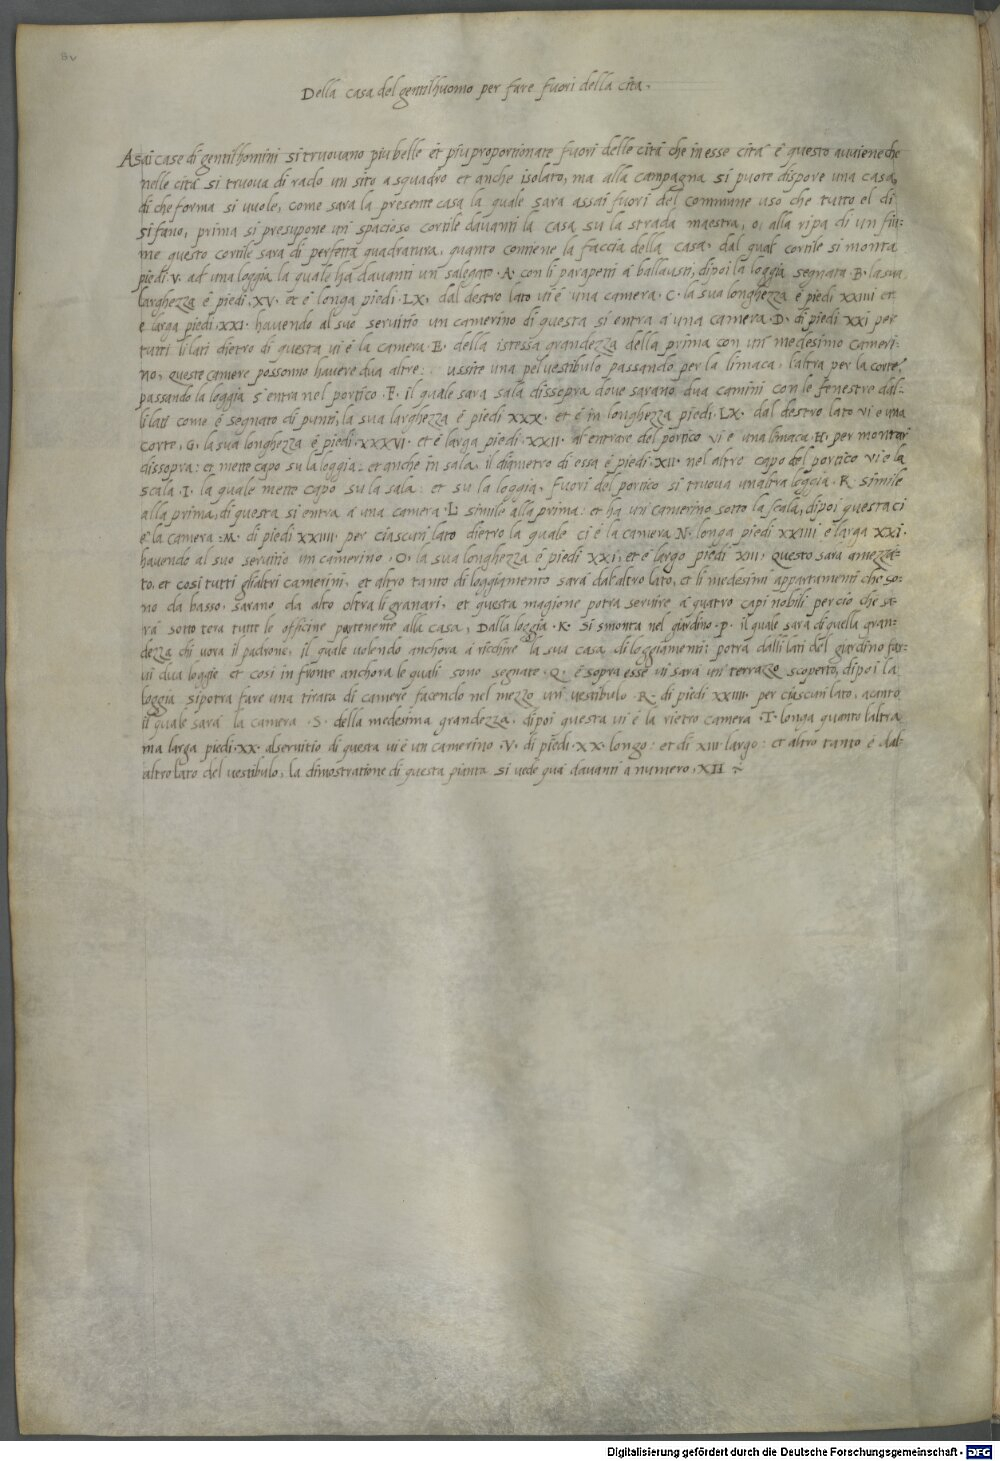 8v
Della casa del gentilhuomo per fare fuori della cita.
Asai case di gentilhomini si truovano piu belle et piu proportionate fuori delle cita che in esse cita e questo aviene che
nelle cita si truova di rado un sito a squadro et anche isolato, ma alla campagna si puote dispore una casa
di che forma si vuole, come sara la presente casa la quale sara assai fuori del commune uso che tutto el di
si fano, prima si presupone un spacioso cortile davanti la casa su la strada maestra, o, alla ripa di un fiu-
me questo cortile sara di perfetta quadratura, quanto contiene la faccia della casa, dal qual cortile si monta
piedi .V. ad una loggia la quale ha davanti un salegato .A. con li parapetti a ballausti, dipoi la loggia segnata .B. la sua
larghezza e piedi .XV. et e longa piedi .LX. dal destro lato vi e una camera .C. la sua longhezza e piedi XXIIII et
e larga piedi .XXI. havendo al suo servitio un camerino di questa si entra a una camera .D. di piedi XXI per
tutti li lati dietro di questa vi e la camera .E. della istessa grandezza della prima con un medesimo cameri-
no, queste camere possonno havere dua altre ussite una pel vestibulo passando per la limaca, laltra per la corte,
passando la loggia s'entra nel portico .F. il quale sara sala dissopra dove sarano dua camini con le fenestre dal-
li lati come e segnato di punti, la sua larghezza e piedi XXX. et e in longhezza piedi .LX. dal destro lato vi e una
corte .G. la sua longhezza e piedi .XXXVI. et e larga piedi .XXII. al entrare del portico vi e una limaca .H. per montar
dissopra: et mette capo su la loggia: et anche in sala, il diametro di essa e piedi .XII. nel altro capo del portico vi e la
scala .I. la quale mette capo su la sala: et su la loggia, fuori del portico si truova unaltra loggia .K. simile
alla prima, di questa si entra a una camera .L. simile alla prima: et ha un camerino sotto la scala, dipoi questa ci
e la camera .M. di piedi XXIIII. per ciascun lato dietro la quale ci e la camera N. longa piedi XXIIII e larga XXI.
havendo al suo servitio un camerino .O. la sua longhezza e piedi XXI, et e largo piedi XIII. questo sara amezza-
to, et cosi tutti glialtri camerini, et altro tanto di loggiamento sara dal altro lato, et li medesimi appartamenti che so-
no da basso, sarano da alto oltra li granari, et questa magione potra servire a quatro capi nobili percio che sa-
ra sotto tera tutte le officine partenente alla casa, Dalla loggia .K. si smonta nel giardino .P. il quale sara di quella gran-
dezza chi vora il padrone, il quale volendo anchora a richire la sua casa di loggiamenti; potra dalli lati del giardino far-
vi dua loggie et cosi in fronte anchora le quali sono segnate .Q. e sopra esse vi sara un terrazo scoperto, dipoi la
loggia si potra fare una tirata di camere facendo nel mezzo un vestibulo .R. di piedi XXIIII. per ciascun lato, acanto
il quale sara la camera .S. della medesima grandezza. dipoi questa vi e la rietro camera .T. longa quanto laltra
ma larga piedi .XX. al servitio di questa vi e un camerino .V. di piedi .XX. longo: et di XIII largo: et altro tanto e dal-
altro lato del vestibulo, la dimostratione di questa pianta si vede qua davanti a numero, XII
Digitalisierung gefördert durch die Deutsche Forschungsgemeinschaft - DFG